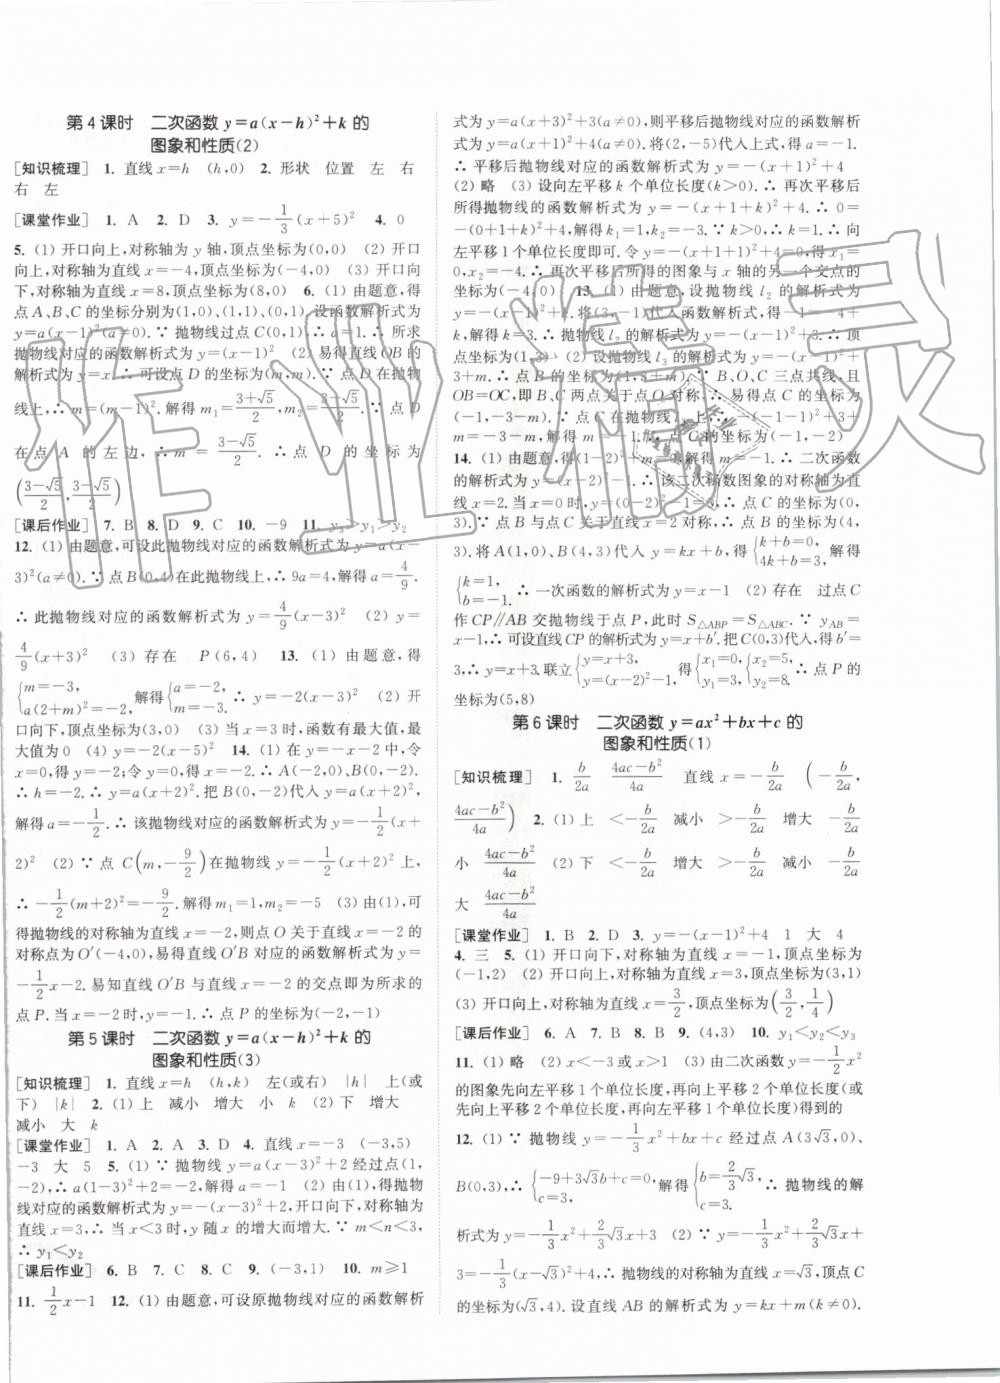 第4课时 二次函数 y=a(x-h)²+k 的
图象和性质(2)
[知识梳理] 1. 直线 x=h (h,0) 2. 形状 位置 左 右
右 左
[课堂作业] 1. A 2. D 3. y=-1/3(x+5)² 4. 0
5. (1) 开口向上,对称轴为 y 轴,顶点坐标为(0,0) (2) 开口
向上,对称轴为直线 x=-4,顶点坐标为(-4,0) (3) 开口向
下,对称轴为直线 x=8,顶点坐标为(8,0) 6. (1) 由题意,得
点 A、B、C 的坐标分别为(1,0)、(1,1)、(0,1).设函数解析式为
y=a(x-1)²(a≠0).∵ 抛物线过点 C(0,1),∴ a=1.∴ 所求
抛物线对应的函数解析式为 y=(x-1)² (2) 易得直线 OB 的
解析式为 y=x.∴ 可设点 D 的坐标为(m,m).∵ 点 D 在抛物
线上,∴ m=(m-1)².解得 m₁=(3+√5)/2,m₂=(3-√5)/2.∵ 点 D
在点 B 的左边,∴ m=(3-√5)/2.∴ 点 D 的坐标为
((3-√5)/2,(3-√5)/2)
[课后作业] 7. B 8. D 9. C 10. -9 11. y₃>y₁>y₂
12. (1) 由题意,可设此抛物线对应的函数解析式为 y=a(x-
3)²(a≠0).∵ 点 B(0,4)在抛物线上,∴ 9a=4,解得 a=4/9.
∴ 此抛物线对应的函数解析式为 y=4/9(x-3)² (2) y=
4/9(x+3)² (3) 存在 P(6,4) 13. (1) 由题意,得
{m=-3, a(2+m)²=-2. 解得{a=-2, m=-3. ∴ y=-2(x-3)² (2) 开
口向下,顶点坐标为(3,0) (3) 当 x=3 时,函数有最大值,最
大值为 0 (4) y=-2(x-5)² 14. (1) 在 y=-x-2 中,令
x=0,得 y=-2;令 y=0,得 x=-2.∴ A(-2,0)、B(0,-2).
∴ h=-2.∴ y=a(x+2)².把 B(0,-2)代入,得-2=4a,
解得 a=-1/2.∴ 该抛物线对应的函数解析式为 y=-1/2(x+
2)² (2) ∵ 点 C(m,-9/2)在抛物线 y=-1/2(x+2)² 上,
∴ -1/2(m+2)²=-9/2.解得 m₁=1,m₂=-5 (3) 由(1),可
得抛物线的对称轴为直线 x=-2,则点 O 关于直线 x=-2 的
对称点为 O′(-4,0),易得直线 O′B 对应的函数解析式为 y=
-1/2x-2.易知直线 O′B 与直线 x=-2 的交点即为所求的
点 P.当 x=-2 时,y=-1,∴ P 的坐标为(-2,-1)
第5课时 二次函数 y=a(x-h)²+k 的
图象和性质(3)
[知识梳理] 1. 直线 x=h (h,k) 左(或右) |h| 上(或
下) |k| 2. (1) 上 减小 增大 小 k (2) 下 增大
减小 大 k
[课堂作业] 1. A 2. A 3. D 4. 直线 x=-3 (-3,5)
-3 大 5 5. (1) ∵ 抛物线 y=a(x-3)²+2 经过点(1,
-2),∴ a(1-3)²+2=-2.解得 a=-1 (2) 由(1),得抛物线
对应的函数解析式为 y=-(x-3)²+2,开口向下,对称轴为
直线 x=3,∴ 当 x<3 时,y 随 x 的增大而增大.∵ m<n<3,
∴ y₁<y₂
[课后作业] 6. B 7. C 8. C 9. (-3,1) 10. m≥1
11. 1/2x-1 12. (1) 由题意,可设原抛物线对应的函数解析
式为 y=a(x+3)²+3(a≠0),则平移后抛物线对应的函数解析
式为 y=a(x+1)²+4(a≠0).将(2,-5)代入上式,得 a=-1.
∴ 平移后抛物线对应的函数解析式为 y=-(x+1)²+4
(2) 略 (3) 设向左平移 k 个单位长度(k>0).∴ 再次平移后
所得抛物线的函数解析式为 y=-(x+1+k)²+4.∴ 0=
-(0+1+k)²+4,解得 k₁=1,k₂=-3.∵ k>0,∴ k=1.∴ 向
左平移 1 个单位长度即可.令-(x+1+1)²+4=0,得 x₁=
0,x₂=-4.∴ 再次平移后所得的图象与 x 轴的另一个交点的
坐标为(-4,0) 13. (1) 由题意,设抛物线 l₂ 的解析式为
y=-(x-1)²+k.将(3,-1)代入函数解析式,得-4+k=-1,
解得 k=3.∴ 抛物线 l₂ 的解析式为 y=-(x-1)²+3.∴ 顶点
坐标为(1,3) (2) 设抛物线 l₃ 的解析式为 y=-(x-1)²+
3+m.∴ 点 B 的坐标为(1,3+m).∵ B、O、C 三点共线,且
OB=OC,即 B、C 两点关于点 O 对称,∴ 易得点 C 的坐标为
(-1,-3-m).∵ 点 C 在抛物线 l₃ 上,∴ -(-1-1)²+3+
m=-3-m,解得 m=-1.∴ 点 C 的坐标为(-1,-2)
14. (1) 由题意,得(1-2)²+m=0,解得 m=-1.∴ 二次函数
的解析式为 y=(x-2)²-1.∴ 该二次函数图象的对称轴为直
线 x=2.当 x=0 时,y=(0-2)²-1=3,∴ 点 C 的坐标为
(0,3).∵ 点 B 与点 C 关于直线 x=2 对称,∴ 点 B 的坐标为(4,
3).将 A(1,0)、B(4,3)代入 y=kx+b,得{k+b=0, 4k+b=3, 解得
{k=1, b=-1. ∴ 一次函数的解析式为 y=x-1 (2) 存在 过点 C
作 CP∥AB 交抛物线于点 P,此时 S△ABP=S△ABC.∵ yAB=
x-1,∴ 可设直线 CP 的解析式为 y=x+b′.把 C(0,3)代入,得 b′=
3,∴ y=x+3.联立{y=x+3, y=(x-2)²-1, 得{x₁=0, y₁=3, {x₂=5, y₂=8. ∴ 点 P 的
坐标为(5,8)
第6课时 二次函数 y=ax²+bx+c 的
图象和性质(1)
[知识梳理] 1. b/2a (4ac-b²)/4a 直线 x=-b/2a (-b/2a,
(4ac-b²)/4a) 2. (1) 上 <-b/2a 减小 >-b/2a 增大 -b/2a
小 (4ac-b²)/4a (2) 下 <-b/2a 增大 >-b/2a 减小 -b/2a
大 (4ac-b²)/4a
[课堂作业] 1. B 2. D 3. y=-(x-1)²+4 1 大 4
4. 三 5. (1) 开口向下,对称轴为直线 x=-1,顶点坐标为
(-1,2) (2) 开口向下,对称轴为直线 x=3,顶点坐标为(3,1)
(3) 开口向上,对称轴为直线 x=3/2,顶点坐标为(3/2,1/4)
[课后作业] 6. A 7. B 8. B 9. (4,3) 10. y₁<y₂<y₃
11. (1) 略 (2) x<-3或 x>1 (3) 由二次函数 y=-1/2x²
的图象先向左平移 1 个单位长度,再向上平移 2 个单位长度(或
先向上平移 2 个单位长度,再向左平移 1 个单位长度)得到的
12. (1) ∵ 抛物线 y=-1/3x²+bx+c 经过点 A(3√3,0)、
B(0,3),∴ {-9+3√3b+c=0, c=3, 解得{b=2/3√3, c=3. ∴ 抛物线的解
析式为 y=-1/3x²+2/3√3x+3 (2) ∵ y=-1/3x²+2/3√3x+
3=-1/3(x-√3)²+4,∴ 抛物线的对称轴为直线 x=√3,顶点 C
的坐标为(√3,4).设直线 AB 的解析式为 y=kx+m(k≠0).
作业精灵